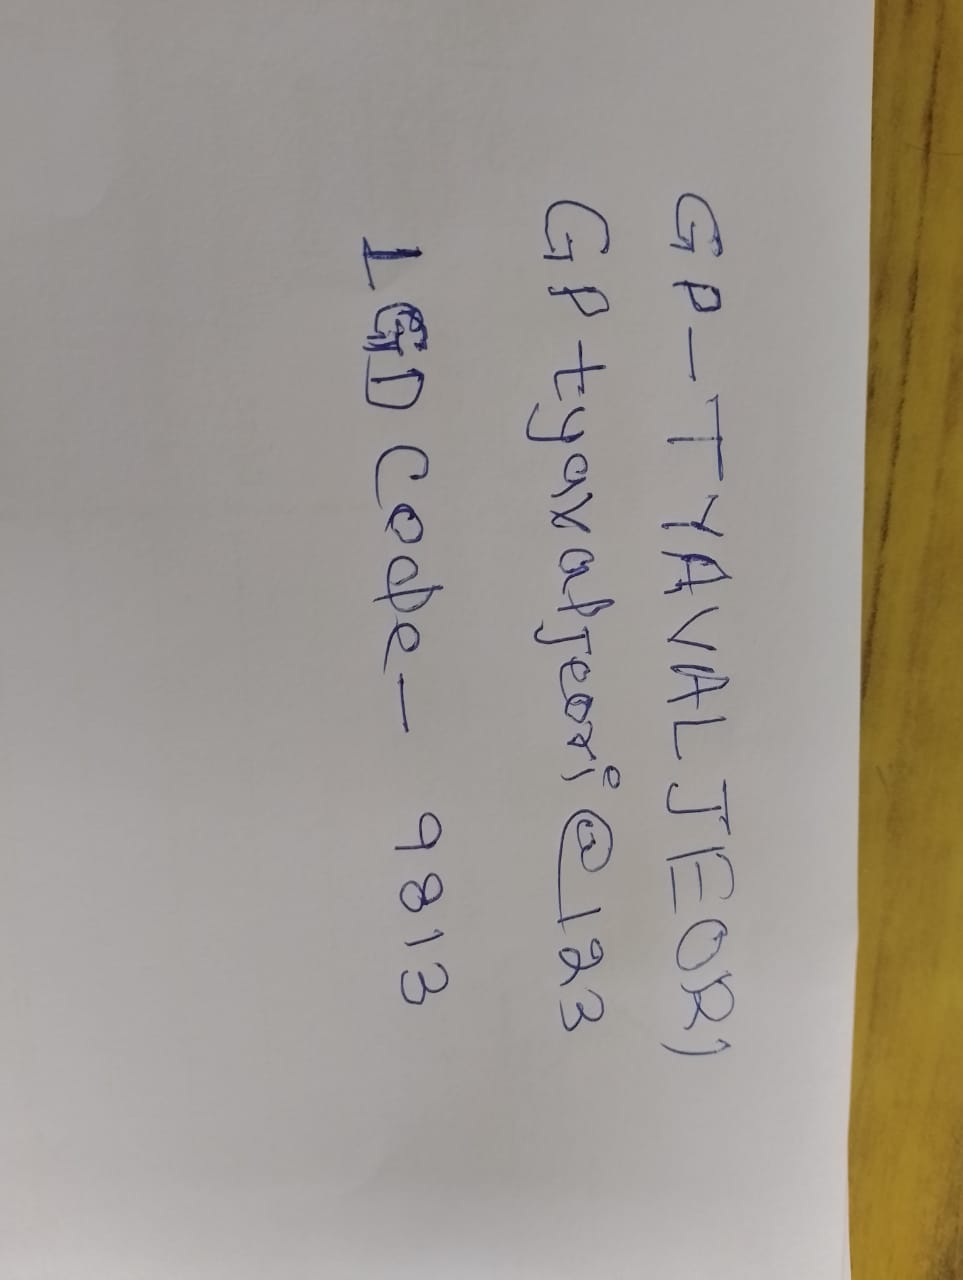 GP-TYAVAL JEORI
GP tyavaljeori@123
LGD Code- 9813